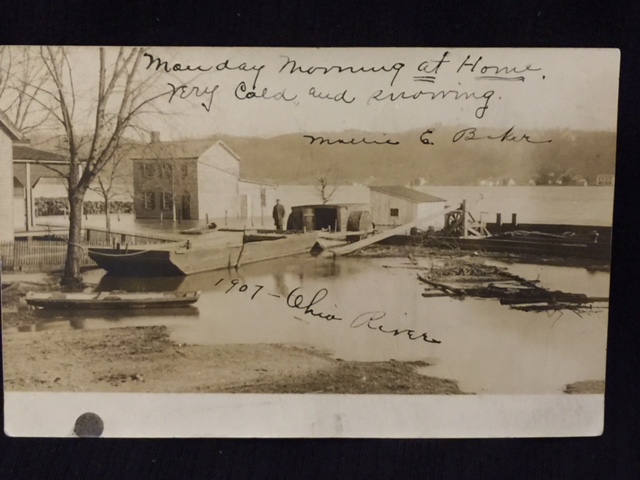 Monday Morning at Home.
Very Cold, and snowing.
Mollie E. Baker
1907 - Ohio River